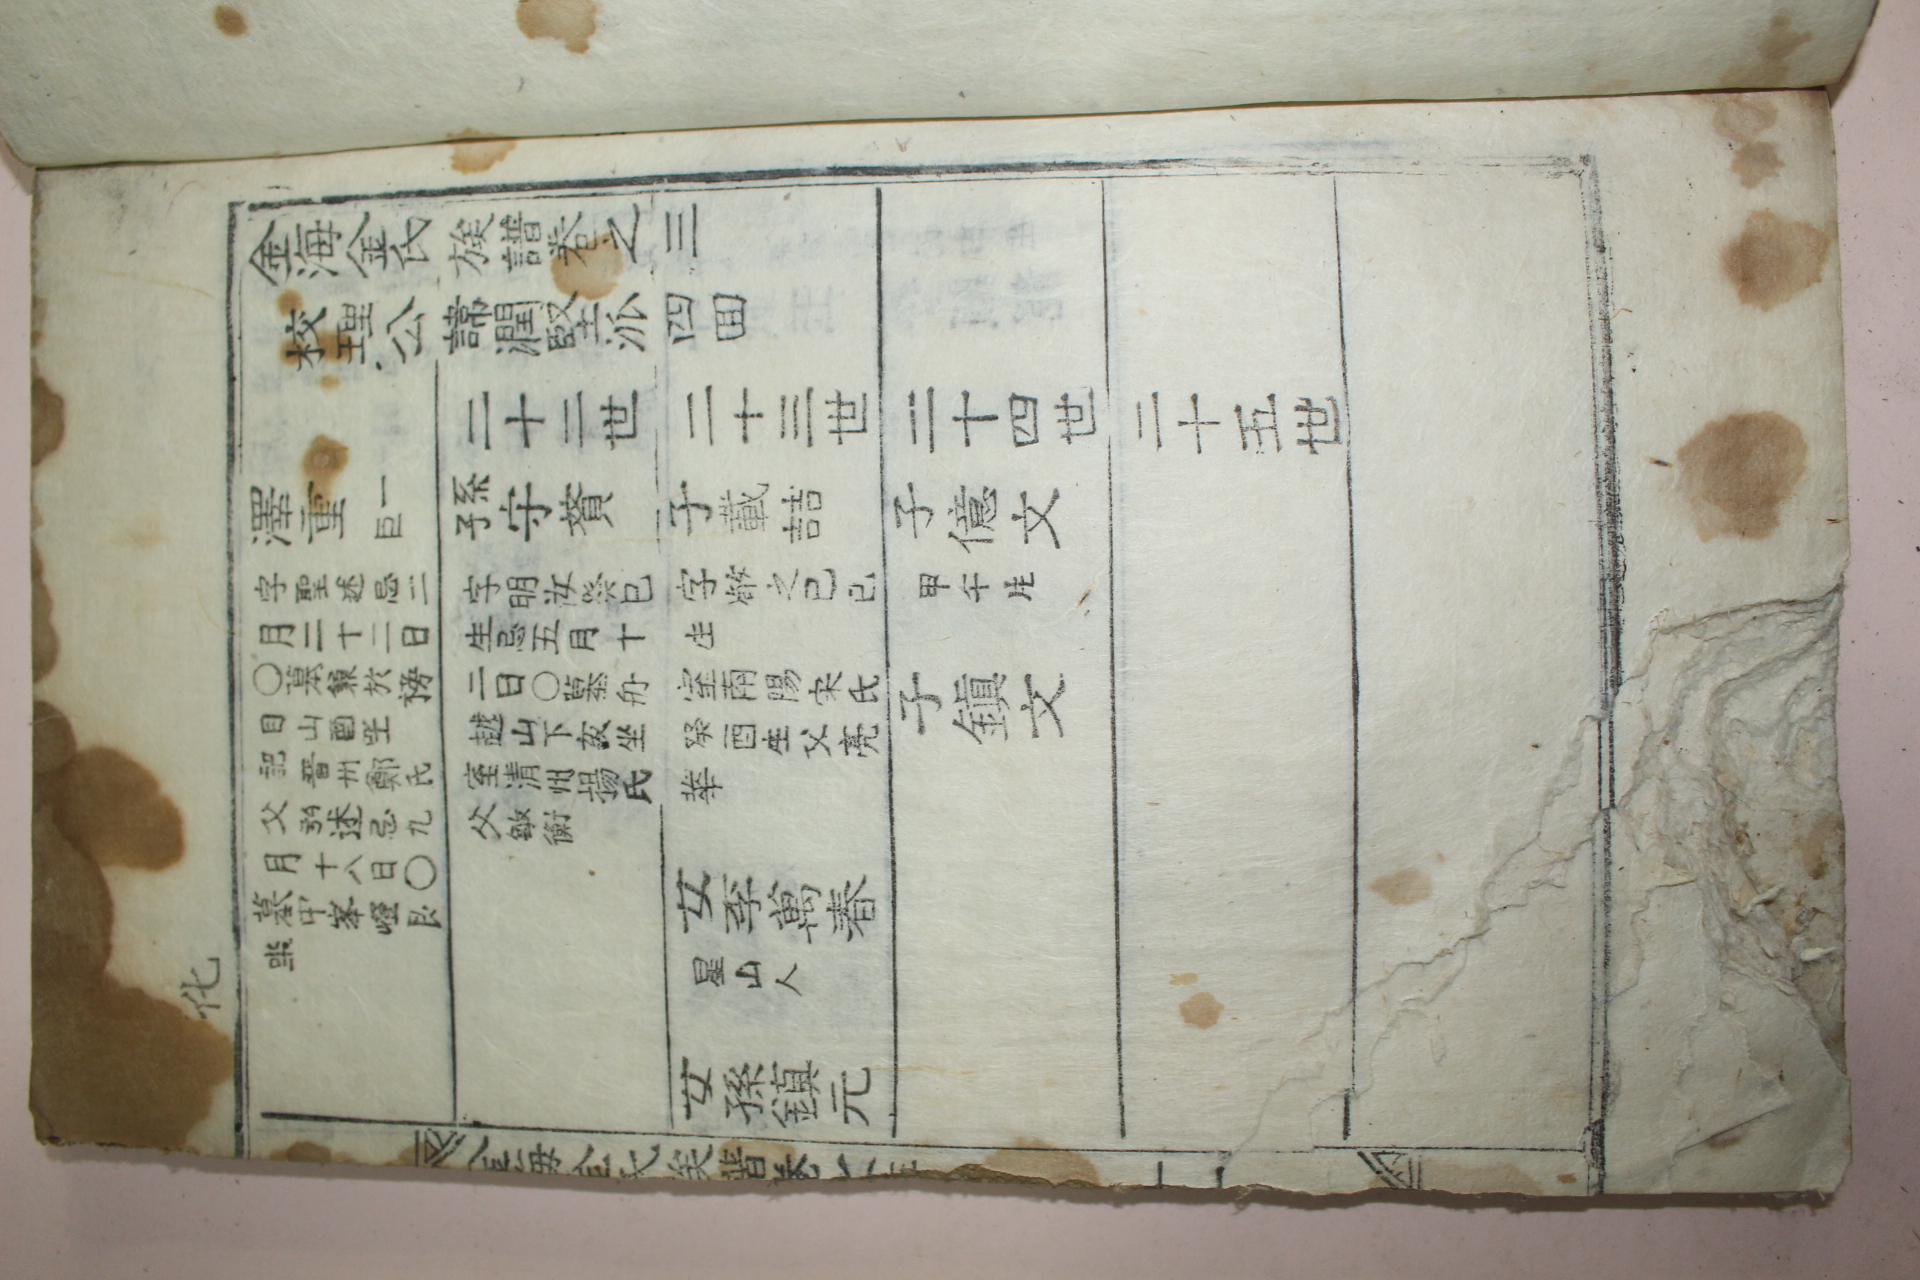 金海金氏族譜卷之三
校理公諱潤堅派
二十二世
二十三世
二十四世
二十五世
澤重
字聖述忌二
月二十二日
〇墓於
目山酉坐
配晋州鄭氏
父弘述忌九
月十八日〇
墓甲峯嶝艮
坐
孫守贇
字明汝癸巳
生忌五月十
二日〇墓舟
越山下亥坐
室清州楊氏
父敏衡
子載喆
字敬之己巳
生
室南陽宋氏
癸酉生父亮
華
女李萬春
星山人
女孫鎭元
子億文
甲午生
子鎭文
化
金海金氏族譜卷之